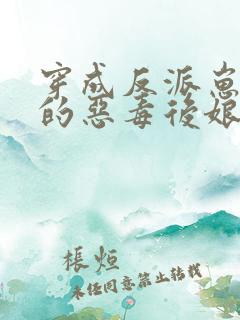 穿成反派崽
的惡毒後娘
棖烜
未经同意禁止转载